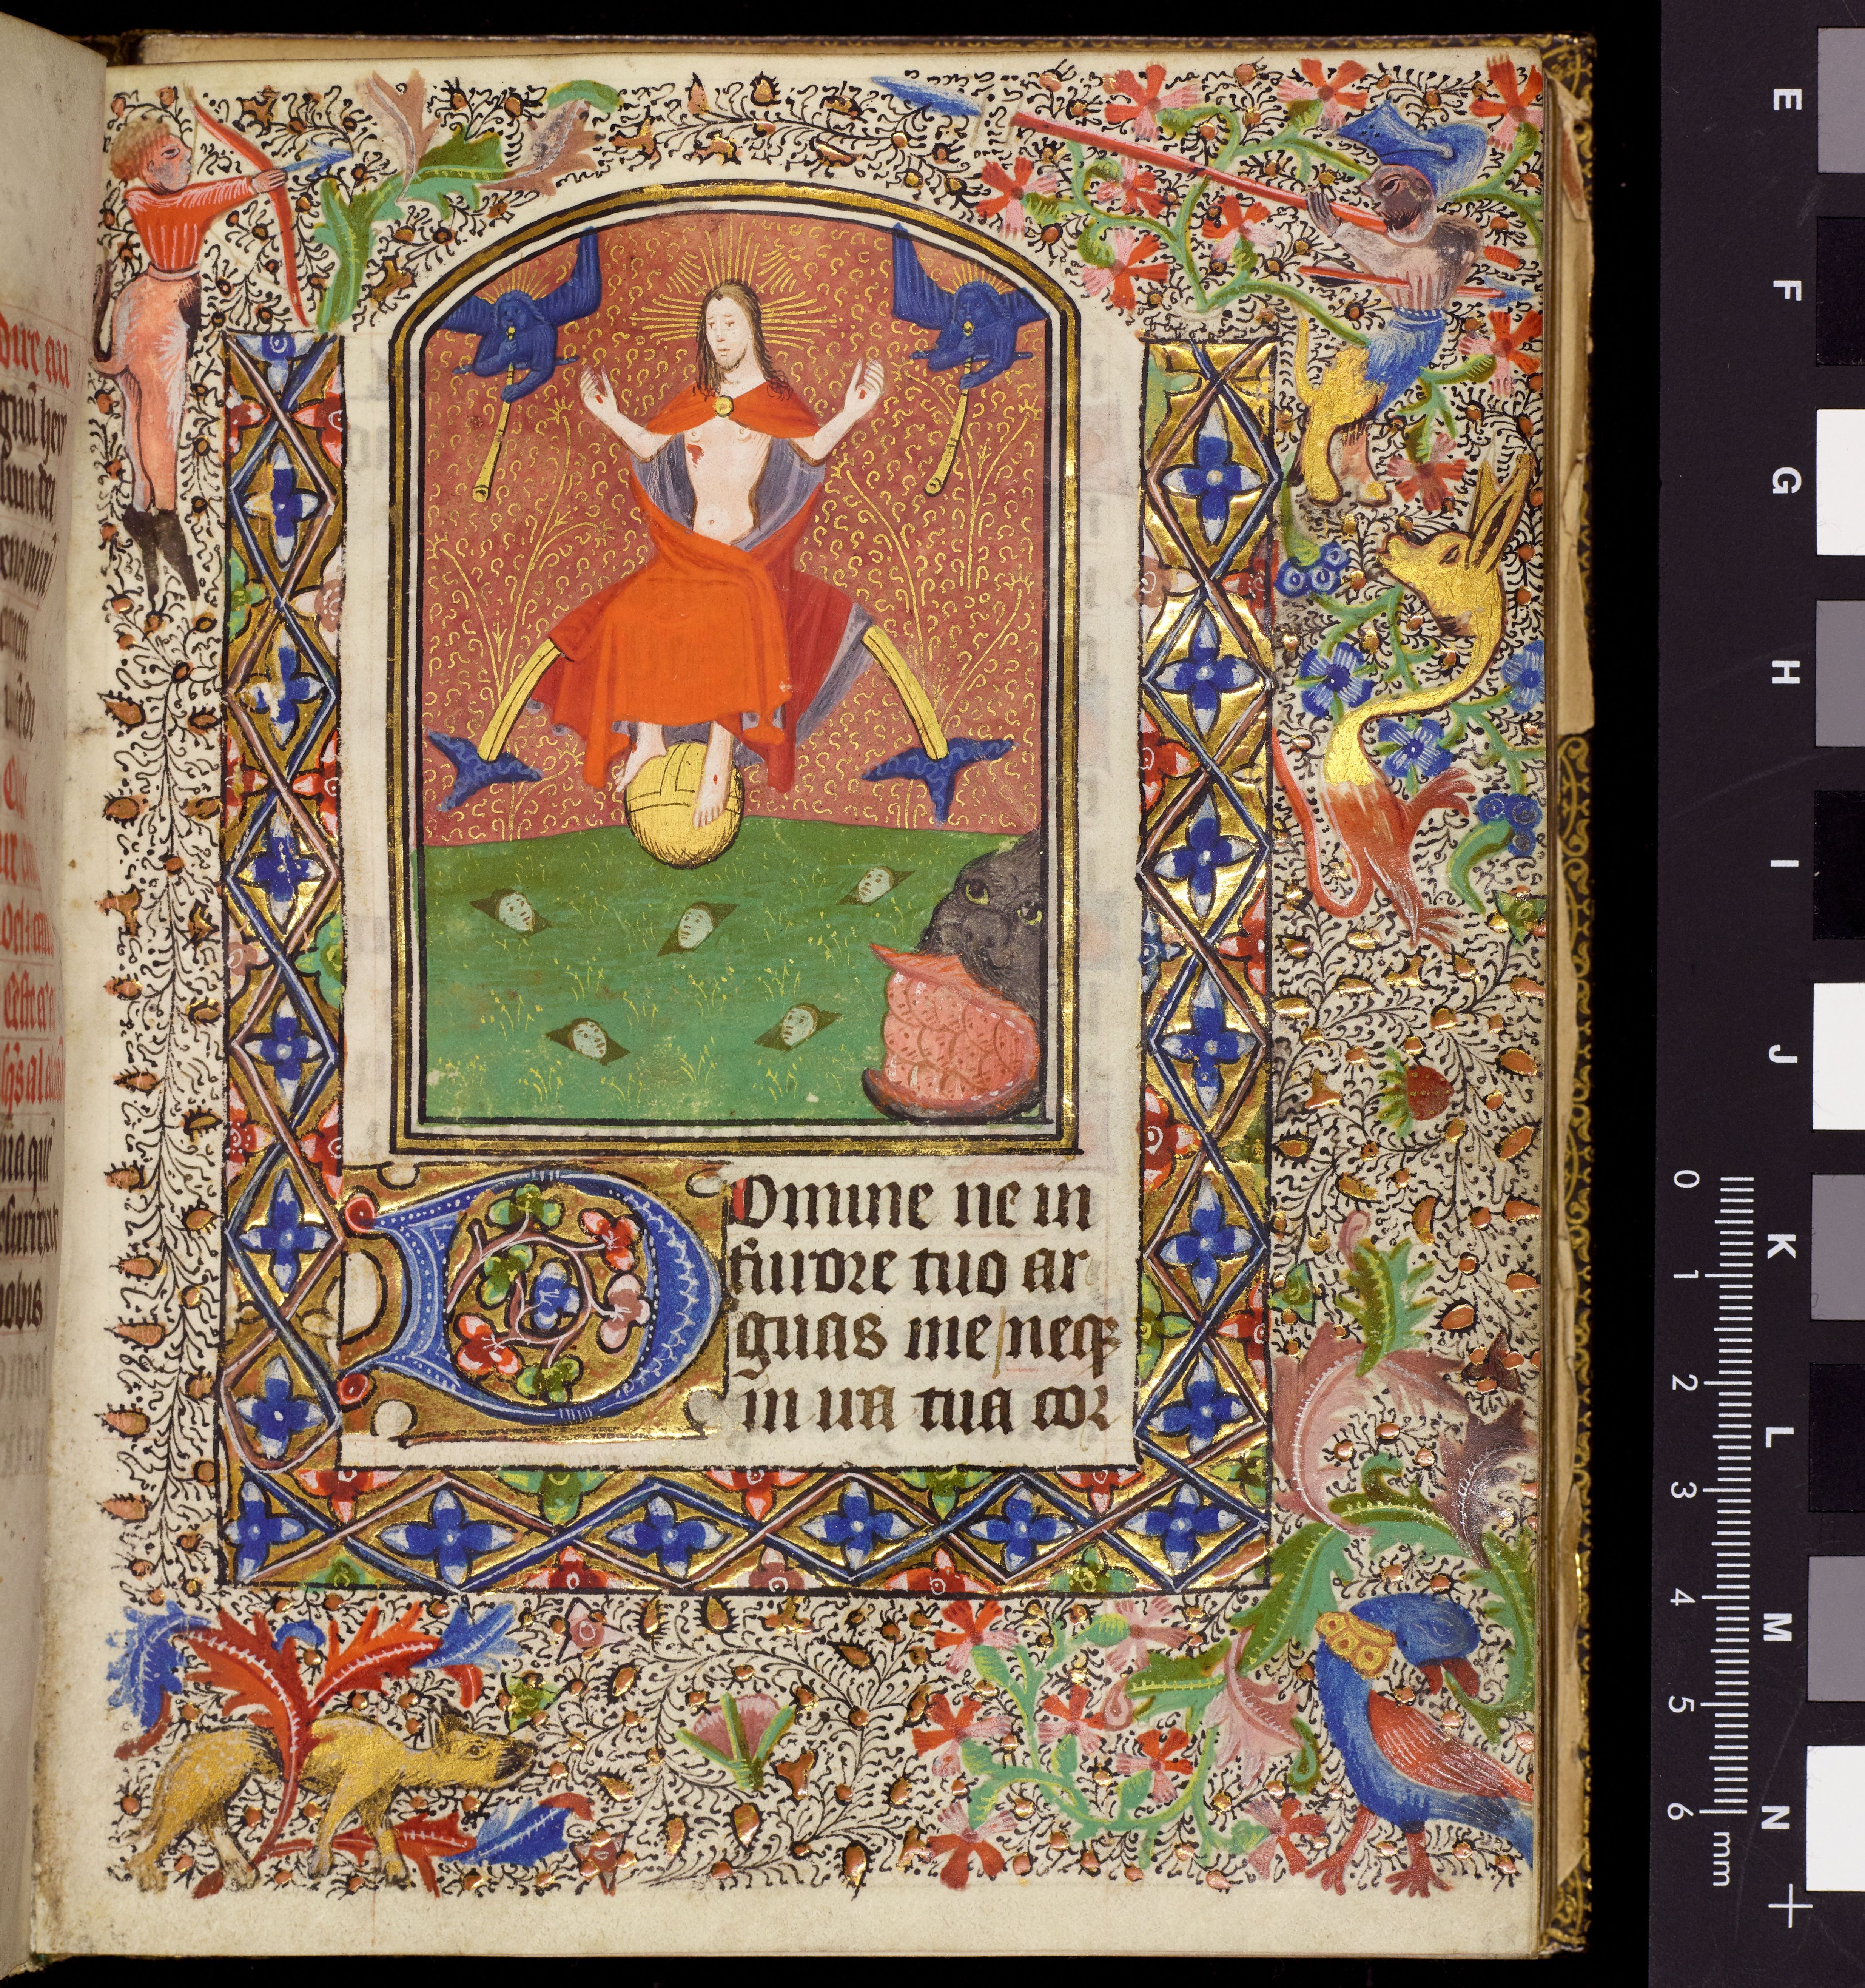 Domine ne in
furore tuo ar
guas me / neqꝫ
in ira tua cor
E
F
G
H
I
J
K
L
M
N
0
1
2
3
4
5
6
mm